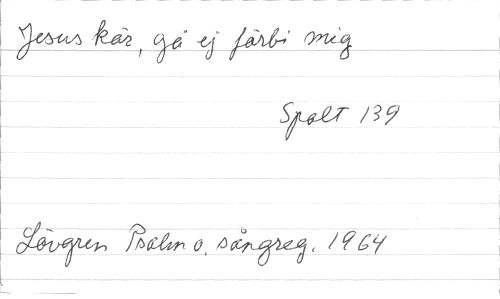 Jesus kär, gå ej förbi mig
Spalt 139
Lövgren Psalm o. sångreg. 1964